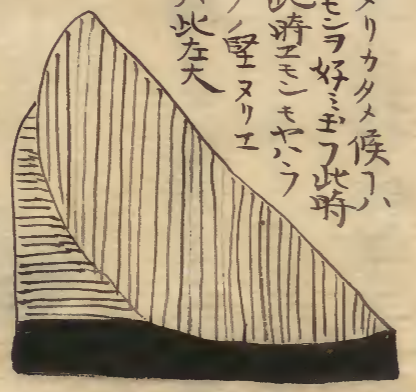 メリカタメ候フハ
モンヲ好ミ玉フ此時
此時ヱモンモヤハラ
ノ堅ヌリヱ
ハ此左大